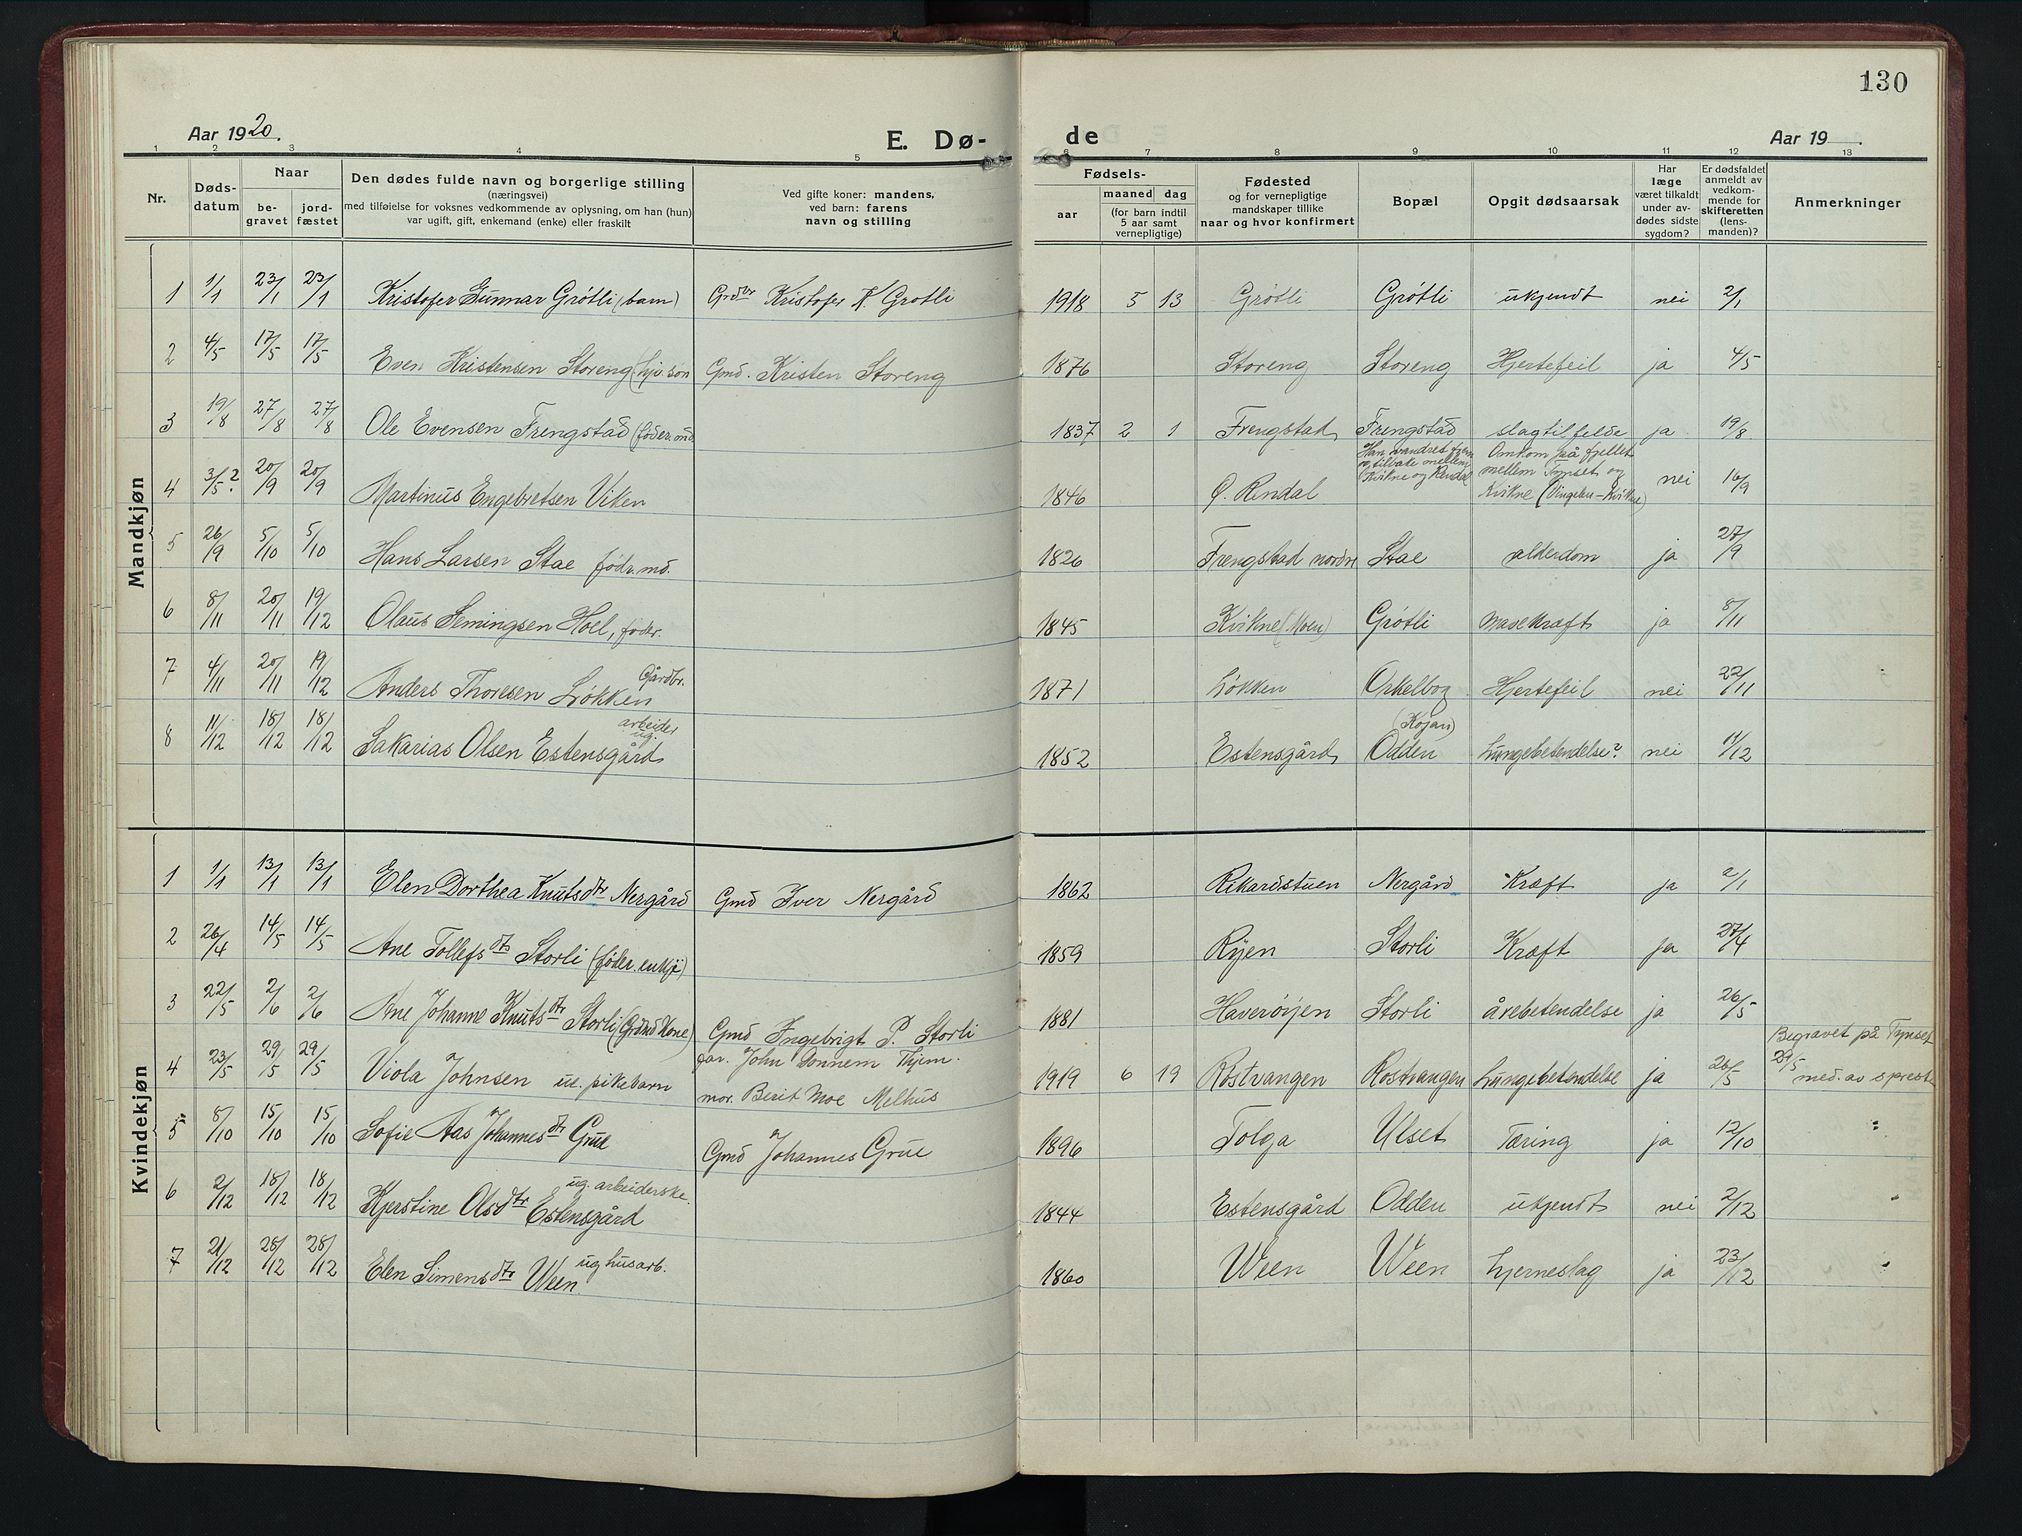 130
Aar 1920.
E. Dø-
de
Aar 19
1 2 3 4 5 6 7 8 9 10 11 12 13
Nr.
Døds-
datum
Naar
be-
gravet
jord-
fæstet
Den dødes fulde navn og borgerlige stilling
(næringsvei)
med tilføielse for voksnes vedkommende av oplysning, om han (hun)
var ugift, gift, enkemand (enke) eller fraskilt
Ved gifte koner: mandens,
ved barn: farens
navn og stilling
Fødsels-
aar
maaned dag
(for barn indtil
5 aar samt
vernepligtige)
Fødested
og for vernepligtige
mandskaper tillike
naar og hvor konfirmert
Bopæl
Opgit dødsaarsak
Har
læge
været tilkaldt
under av-
dødes sidste
sygdom?
Er dødsfaldet
anmeldt av
vedkom-
mende for
skifteretten
(lens-
manden)?
Anmerkninger
Mandkjøn
1 1/1 23/1 23/1 Kristofer Gunnar Grötli (barn) Grdbr Kristofer K. Grotli 1918 5 13 Grötli Grötli ukjendt nei 2/1
2 4/5 17/5 17/5 Even Kristensen Storeng (hjv. søn Gmd. Kristen Storeng 1876 Storeng Storeng Hjertefeil ja 4/5
3 19/8 27/8 27/8 Ole Evensen Frengstad (føder. md. 1837 2 1 Frengstad Frengstad slagtilfelde ja 19/8
4 3/5? 20/9 20/9 Martinus Engebretsen Viken 1846 Ø. Rendal Han vandret frem
og tilbake mellem
Kvikne og Rendal Omkom på fjellet
mellem Tynset og
Kvikne (Vingelen-Kvikne) nei 16/9
5 26/9 5/10 5/10 Hans Larsen Stae födr. md. 1826 Frengstad nordre Stae alderdom ja 27/9
6 8/11 20/11 19/12 Olaus Semingsen Hoel, föder. 1845 Kvikne (Moen) Grötli mavekræft ja 8/11
7 4/11 20/11 19/12 Anders Thoresen Løkken Gårdbr. 1871 Løkken Orkelbog Hjertefeil nei 22/11
8 11/12 18/12 18/12 Sakarias Olsen Estensgård arbeider ug. 1852 Estensgård (Kojan) Odden Lungebetendelse? nei 11/12
Kvindekjøn
1 1/1 13/1 13/1 Elen Dorthea Knutsdtr Nergård Gmd Iver Nergård 1862 Rikardstuen Nergård Kræft ja 2/1
2 26/4 14/5 14/5 Ane Tollefsdtr Storli (føder. enke) 1859 Ryen Storli Kræft ja 27/4
3 22/5 2/6 2/6 Ane Johanne Knutsdtr Storli (Grdmd Kone) Gmd Ingebrigt P. Storli 1881 Haverøyen Storli årebetendelse ja 26/5
4 23/5 29/5 29/5 Viola Johnsen u. pikebarn far. John Sonnem Thjem.
mor. Berit Moe Melhus 1919 6 19 Røstvangen Røstvangen Lungebetendelse ja 26/5 Begravet på Tynset
29/5 med. av s prest
5 8/10 15/10 15/10 Sofie Aas Johannesdtr Grue Gmd Johannes Grue 1896 Tolga Ulset Tæring ja 12/10
6 2/12 18/12 18/12 Kjerstine Olsdtr Estensgård ug. arbeiderske 1844 Estensgård Odden ukjendt nei 2/12
7 21/12 28/12 28/12 Elen Simensdtr Ween ug husarb. 1860 Ween Ween hjerneslag ja 23/12